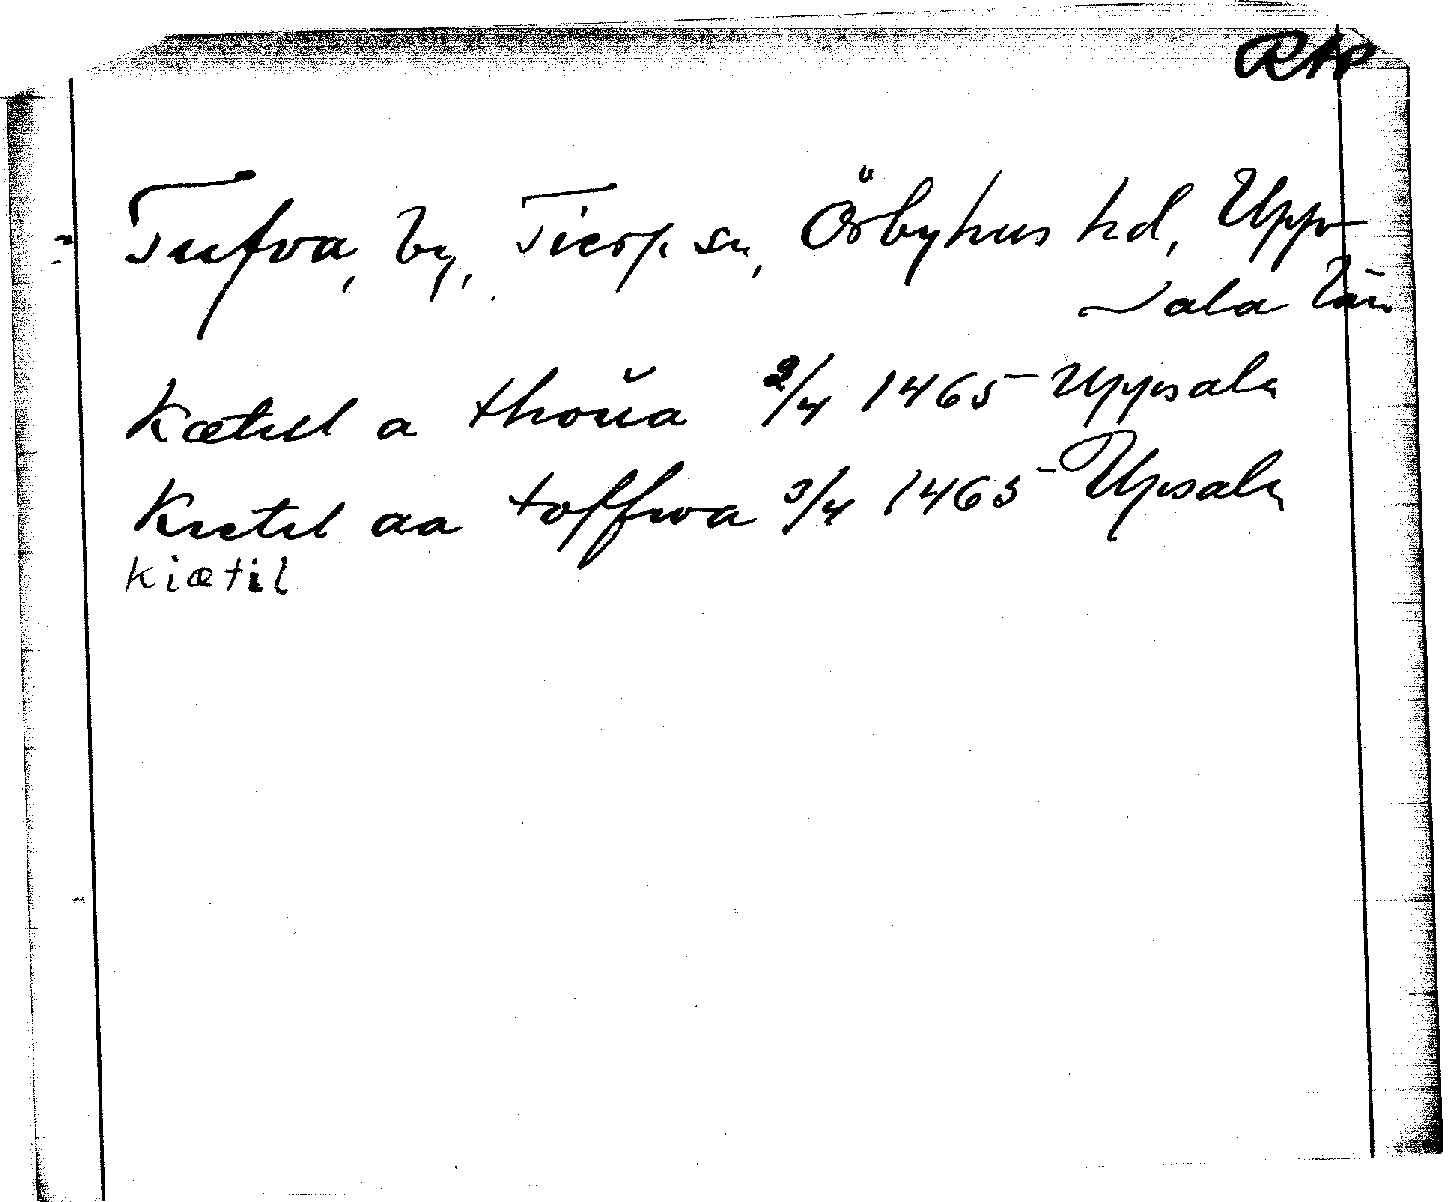 RAp
Tufva, by, Tierp sn, Örbyhus hd, Upp-
sala län
Kætill a thoŭa 2/4 1465 Uppsala
Kietil aa toffwa 3/4 1465 Upsala
kiætil